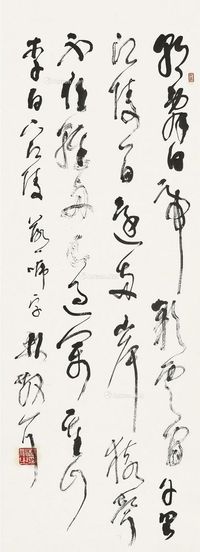 朝辭白帝彩雲間千里
江陵一日還兩岸猿聲
不住輕舟已過萬重山
李白下江陵 落啼字 林散耳